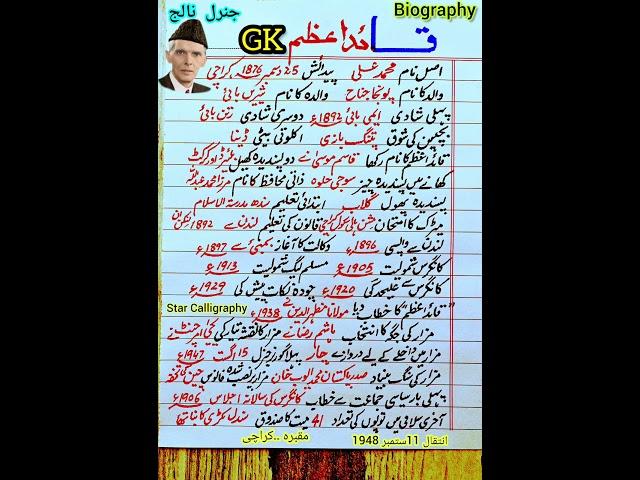 Biography
جنرل نالج
قائداعظم GK
اصل نام محمد علی پیدائش 25 دسمبر 1876ء کراچی
والد کا نام پونجا جناح والدہ کا نام شیریں بائی
پہلی شادی ایمی بائی 1892ء دوسری شادی رتن بائی
بچپن کی شوق پتنگ بازی اکلوتی بیٹی ڈینا
قائداعظم کا نام رکھا قاسم موسیٰ نے دو پسندیدہ کھیل بلیئرڈ اور کرکٹ
کھانے میں پسندیدہ چیز سوجی حلوہ ذاتی محافظ کا نام مرزا محمد عبداللہ
پسندیدہ پھول گلاب ابتدائی تعلیم سندھ مدرسۃ الاسلام
میٹرک کا امتحان مشن ہائی سکول کراچی قانون کی تعلیم لندن سے 1892
لندن سے واپسی 1896ء وکالت کا آغاز بمبئی سے 1897ء
کانگرس شمولیت 1905ء مسلم لیگ شمولیت 1913ء
کانگرس سے علیحدگی 1920ء چودہ نکات پیش کی 1929ء
"قائداعظم" کا خطاب دیا مولانا مظہرالدین نے 1938ء
Star Calligraphy
مزار کی جگہ کا انتخاب ہاشم رضا نے مزار کا نقشہ تیار کی یحییٰ امر چنٹ نے
مزار میں داخلے کے لیے دروازے چار پہلا گورنر جنرل 15 اگست 1947ء
مزار کی سنگ بنیاد صدر پاکستان محمد ایوب خان مزار پر نصب شدہ فانوس چین کی تحفہ
پہلی بار سیاسی جماعت سے خطاب کانگرس کی سالانہ اجلاس 1906ء
آخری سلامی میں توپوں کی تعداد 41 میت کا صندوق صندل لکڑی کا بنا تھا
انتقال 11 ستمبر 1948 مقبرہ ..کراچی